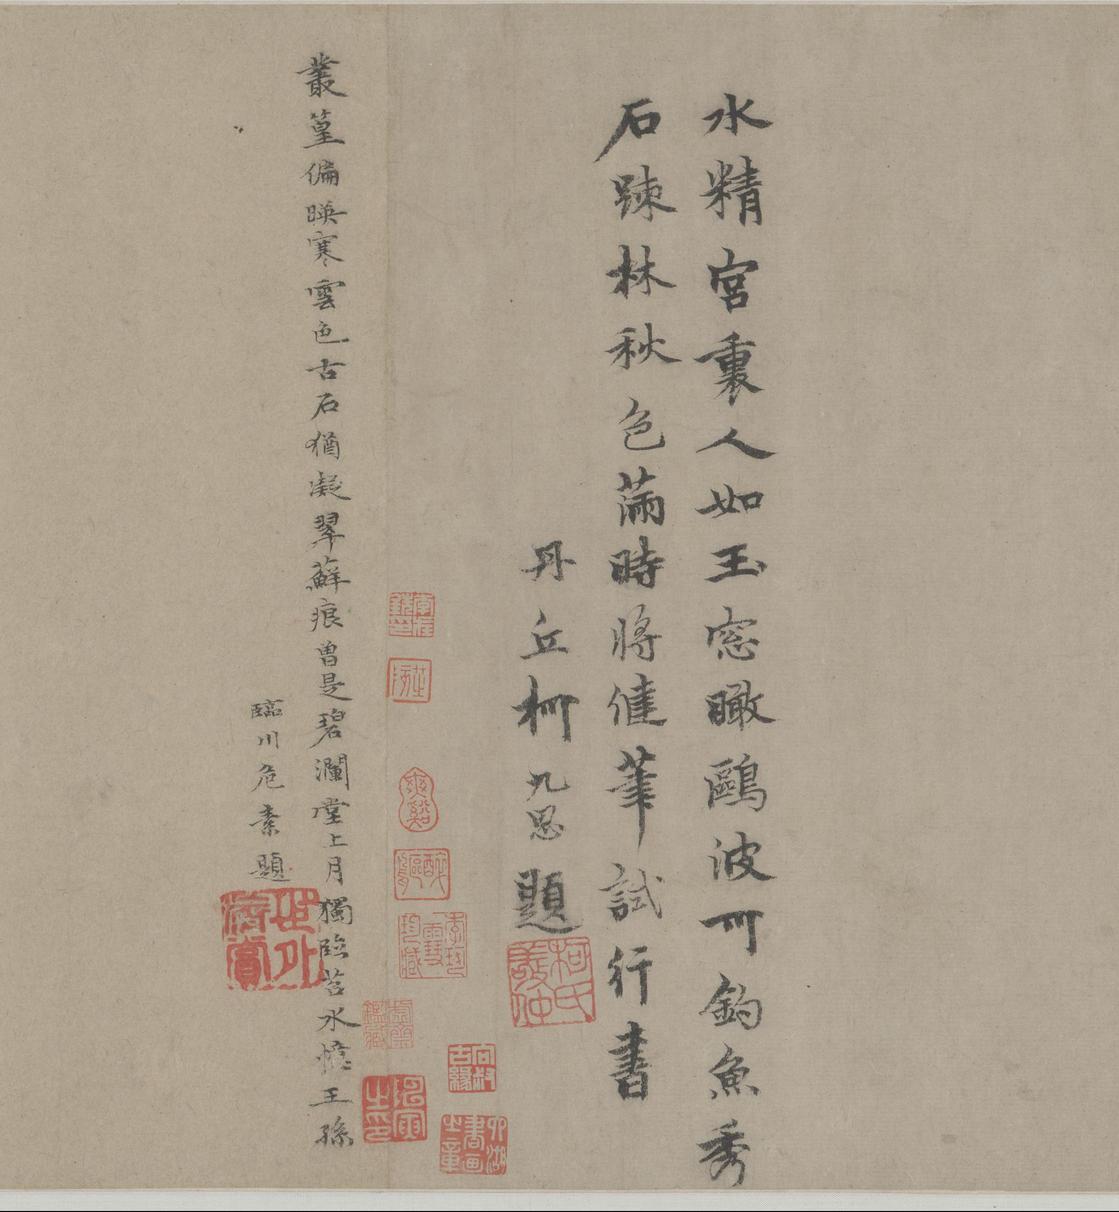 水精宮裏人如玉窓瞰鷗波可釣魚秀
石踈林秋色滿時將健筆試行書
丹丘柯九思題
柯氏敬仲
叢篁偏暎寒雲色古石猶凝翠蘚痕曾是碧瀾堂上月獨臨苕水憶王孫
臨川危素題